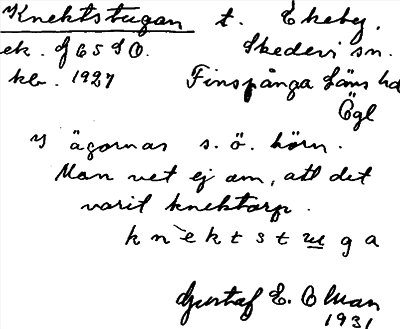 Knektstugan t. Ekeby.
ek. J 65 SO. Skedevi sn.
kbr. 1927 Finspånga läns hd
Ögl
I ägornas s. ö. hörn.
Man vet ej om, att det
varit knektorp.
knèktstuga
Gustaf E. Olman
1931